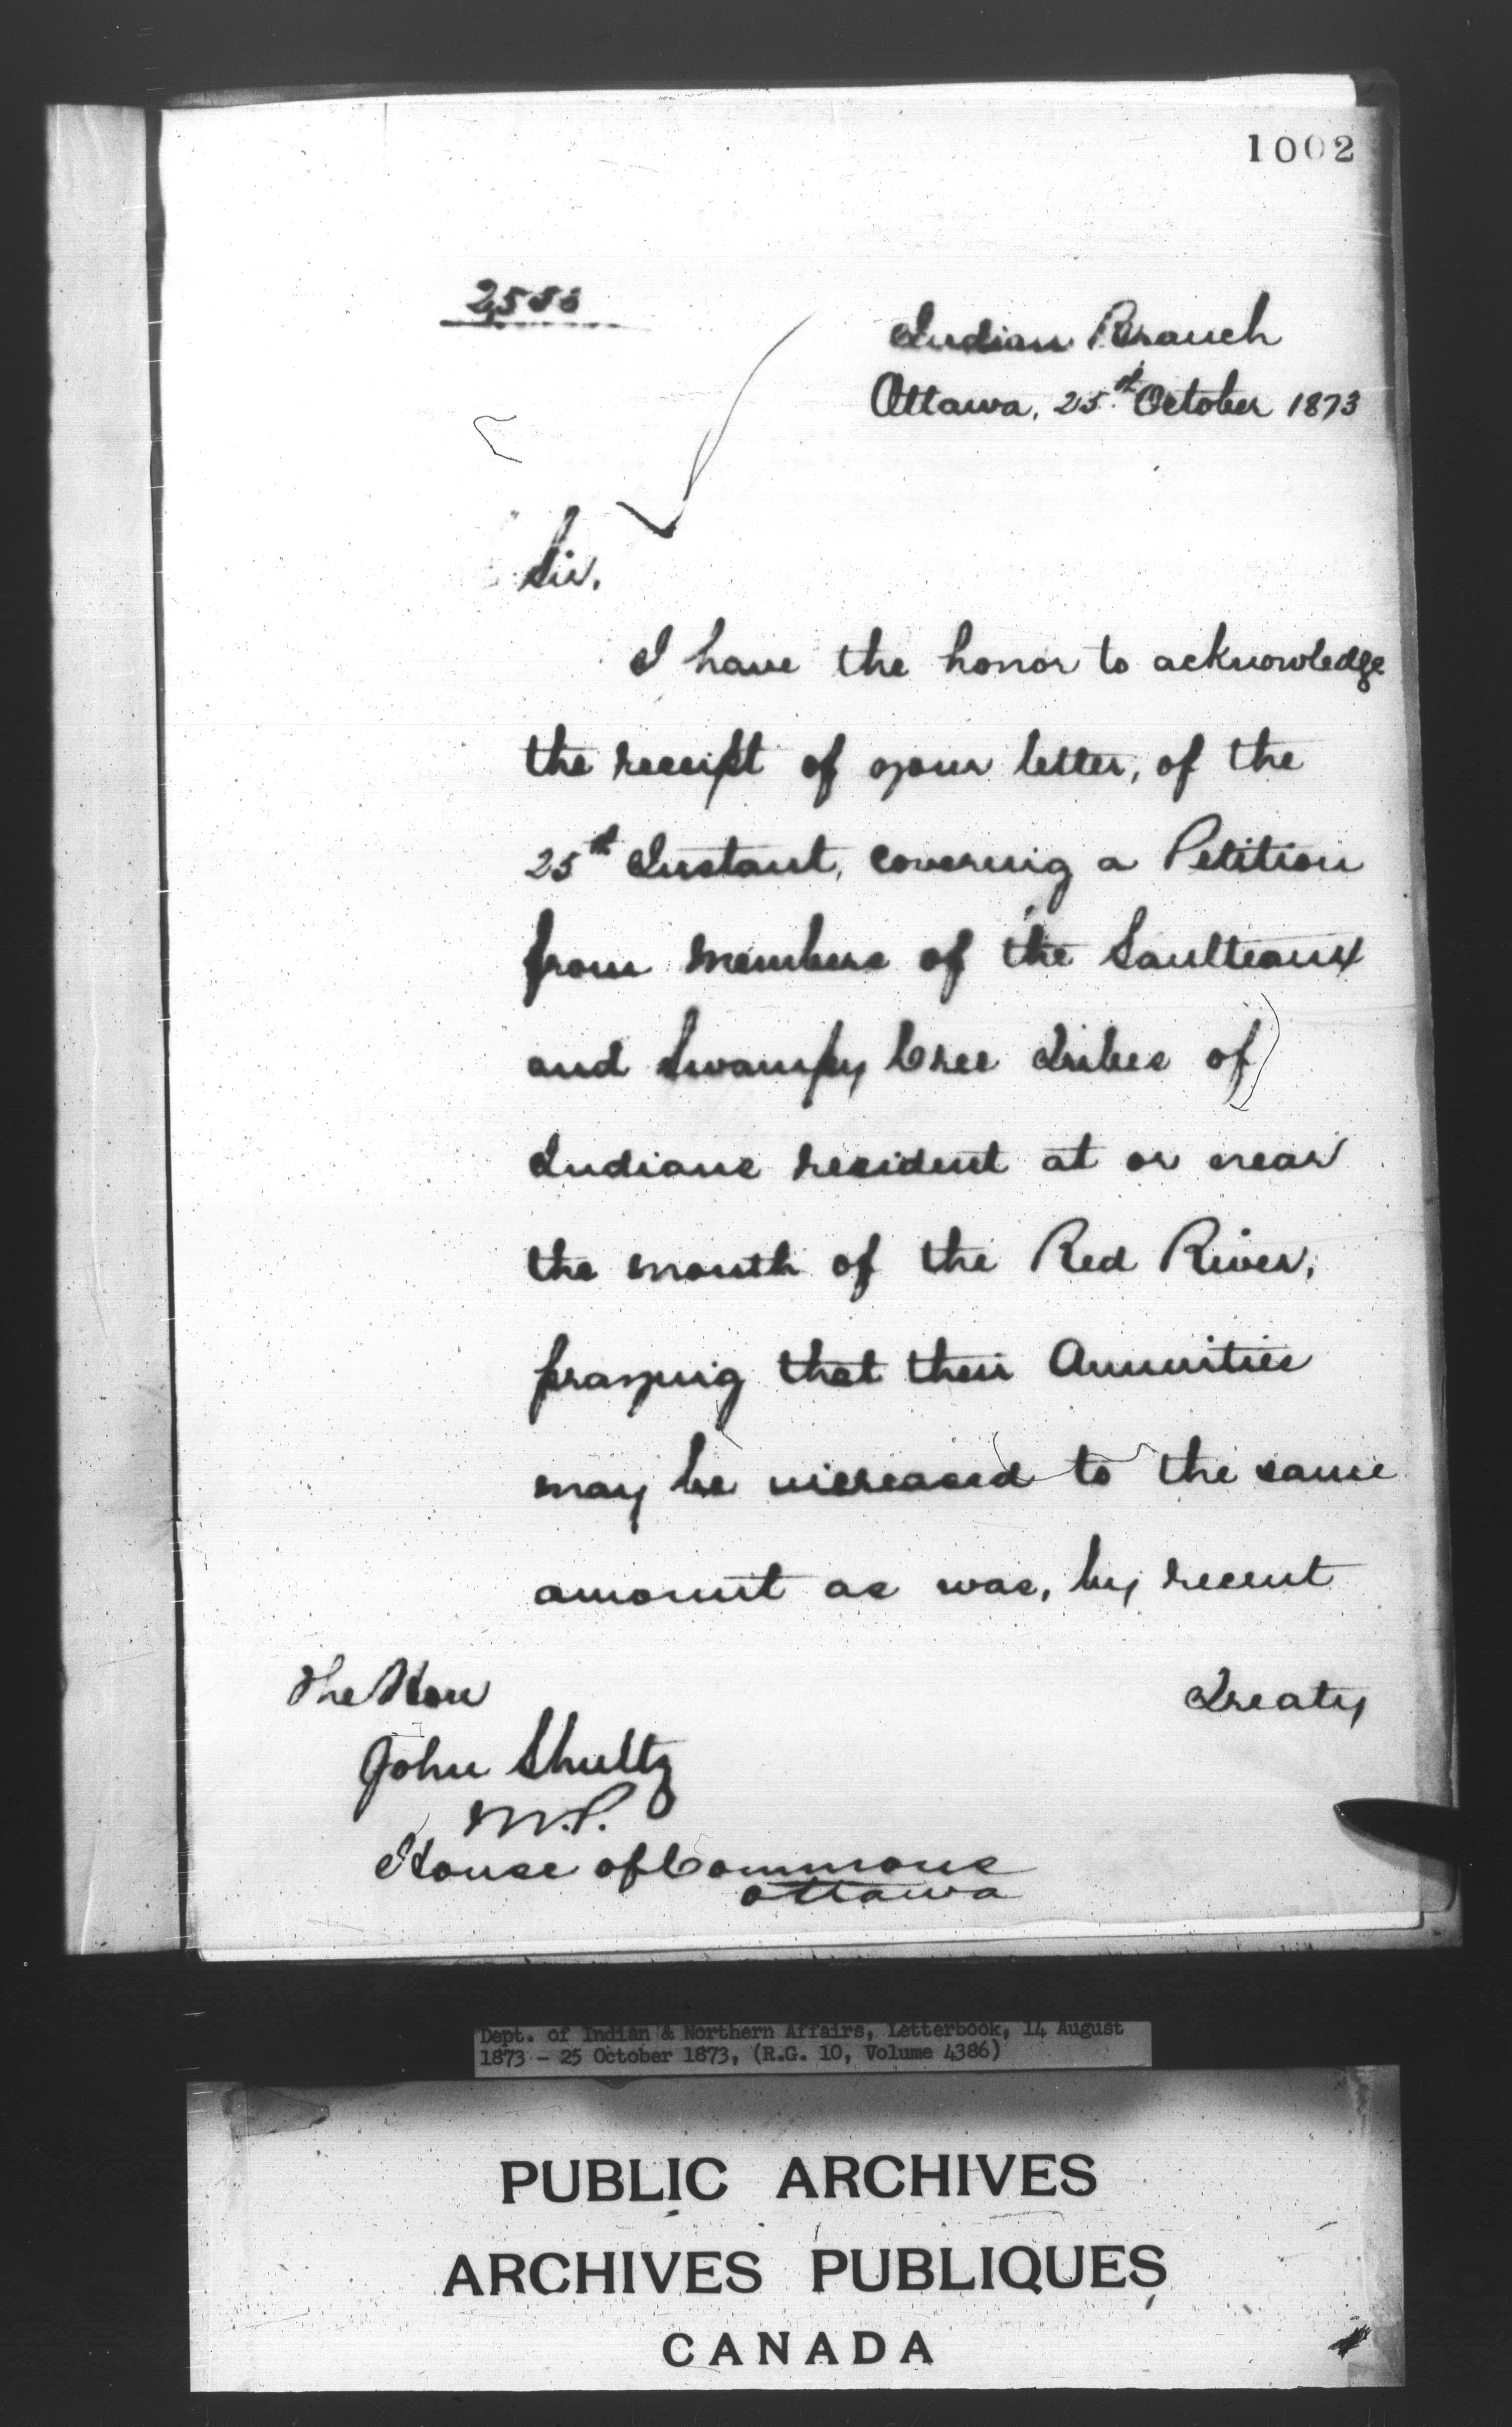 1002
Indian Branch
Ottawa, 25th October 1873
Sir,
I have the honor to acknowledge
the receipt of your letter, of the
25th Instant, covering a Petition
from members of the Saulteaux
and Swampy Cree Tribes of
Indians resident at or near
the mouth of the Red River,
praying that their Annuities
may be increased to the same
amount as was, by recent
Treaty
The Hon
John Shultz
M.P.
House of Commons
Ottawa
Dept. of Indian & Northern Affairs, Letterbook, 14 August
1873 - 25 October 1873, (R.G. 10, Volume 4386)
PUBLIC ARCHIVES
ARCHIVES PUBLIQUES
CANADA